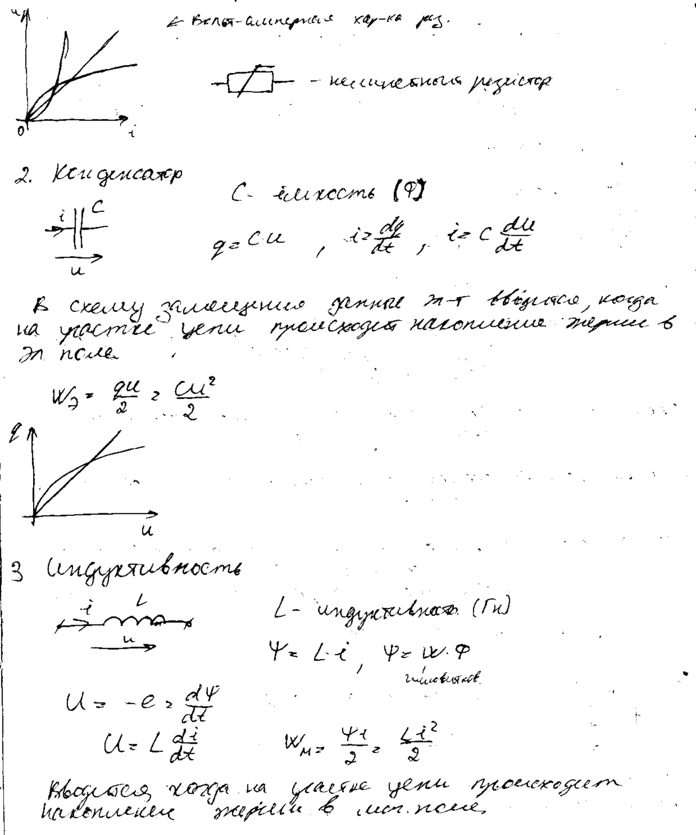 u
← Вольт-амперная хар-ка рез.
0
i
– нелинейный резистор
2. Конденсатор
C - ёмкость [Ф]
i C
u
q = Cu , i = dq/dt , i = C du/dt
В схему замещения данные эл-т вводится, когда
на участке цепи происходит накопление энергии в
эл поле.
Wэ = qu/2 = Cu²/2
q
u
3 Индуктивность
i L
u
L - индуктивность (Гн)
Ψ = L·i , Ψ = w·Ф
число витков
U = -e = dΨ/dt
U = L di/dt
Wм = Ψi/2 = Li²/2
Вводится, когда на участке цепи происходит
накопление энергии в маг. поле.